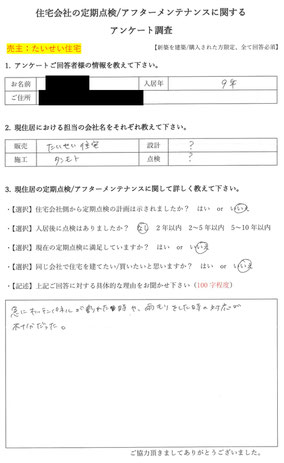 住宅会社の定期点検/アフターメンテナンスに関する
アンケート調査
売主：たいせい住宅
【新築を建築/購入された方限定、全て回答必須】
1. アンケートご回答者様の情報を教えて下さい。
お名前 入居年 9年
ご住所
2. 現住居における担当の会社名をそれぞれ教えて下さい。
販売 たいせい住宅 設計 ?
施工 タンモト 点検 ?
3. 現住居の定期点検/アフターメンテナンスに関して詳しく教えて下さい。
・【選択】住宅会社側から定期点検の計画は示されましたか？ はい or いいえ
・【選択】入居後に点検はありましたか？ なし 2年以内 2～5年以内 5～10年以内
・【選択】現在の定期点検に満足していますか？ はい or いいえ
・【選択】同じ会社で住宅を建てたい/買いたいと思いますか？ はい or いいえ
・【記述】上記ご回答に対する具体的な理由をお聞かせ下さい（100字程度）
急に パネルが れた 時や、雨もりをした時の対応が
だった。
ご協力頂きましてありがとうございました。